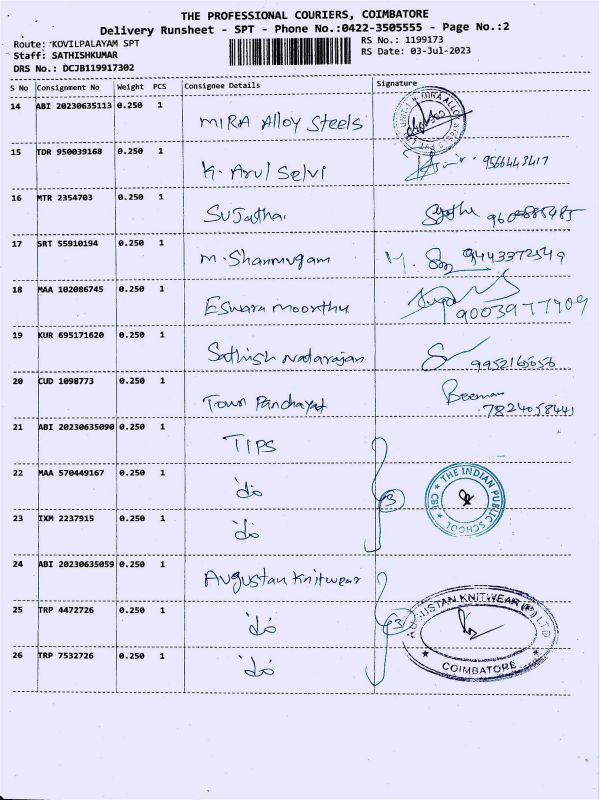 THE PROFESSIONAL COURIERS, COIMBATORE
Delivery Runsheet - SPT - Phone No.:0422-3505555 - Page No.:2
Route: KOVILPALAYAM SPT RS No.: 1199173
Staff: SATHISHKUMAR RS Date: 03-Jul-2023
DRS No.: DCJB119917302
S No Consignment No Weight PCS Consignee Details Signature
14 ABI 20230635113 0.250 1 MIRA Alloy Steels
15 TDR 950039168 0.250 1 K. Arul Selvi 9566443417
16 MTR 2354703 0.250 1 Sujatha
17 SRT 55910194 0.250 1 M. Shanmugam 9443372549
18 MAA 102086745 0.250 1 Eswara moorthu 9003977909
19 KUR 695171620 0.250 1 Sathish natarajan
20 CUD 1098773 0.250 1 Town Panchayat
7824058441
21 ABI 20230635090 0.250 1 TIPS
22 MAA 570449167 0.250 1 do
23 IXM 2237915 0.250 1 do
3
THE INDIAN PUBLIC SCHOOL CBE
24 ABI 20230635059 0.250 1 Augustan Knitwear
25 TRP 4472726 0.250 1 do
26 TRP 7532726 0.250 1 do
3
AUGUSTAN KNITWEAR (P) LTD
COIMBATORE